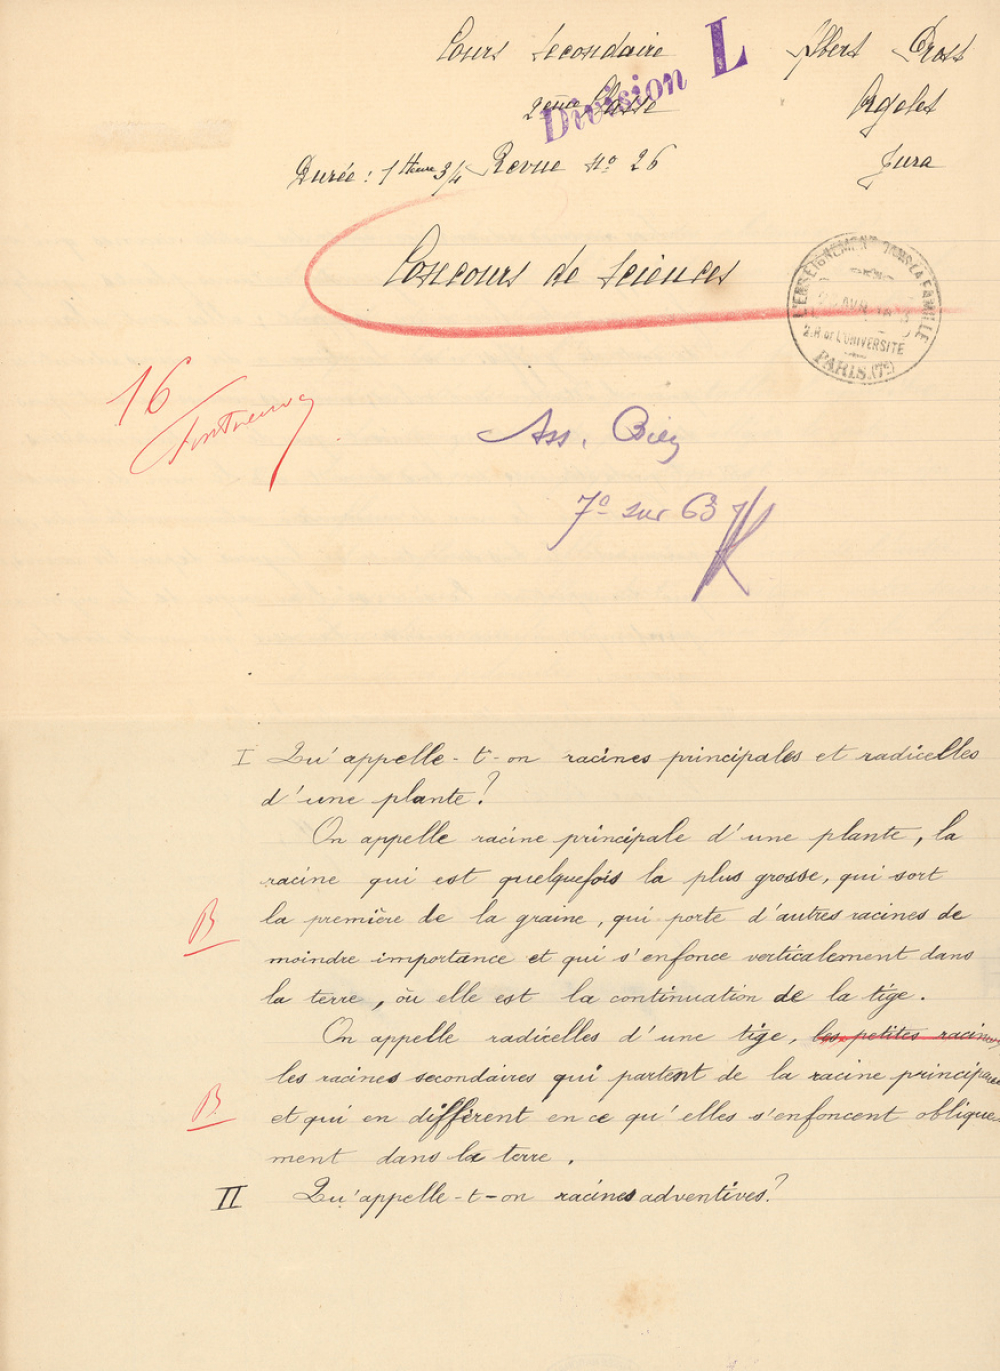 Cours Secondaire
Division L
Albert Prost
2ème Classe
Orgelet
Durée : 1 Heure 3/4 Revue No 26
Jura
Concours de Sciences
L'ENSEIGNEMENT DANS LA FAMILLE
AVR
2. R de L'UNIVERSITE
PARIS (7e)
16
Ass. Bien
7e sur 63
I Qu'appelle-t-on racines principales et radicelles
d'une plante ?
On appelle racine principale d'une plante, la
racine qui est quelquefois la plus grosse, qui sort
B la première de la graine, qui porte d'autres racines de
moindre importance et qui s'enfonce verticalement dans
la terre, où elle est la continuation de la tige.
On appelle radicelles d'une tige, les petites racines
les racines secondaires qui partent de la racine principale
B et qui en diffèrent en ce qu'elles s'enfoncent oblique-
ment dans la terre.
II Qu'appelle-t-on racines adventives ?